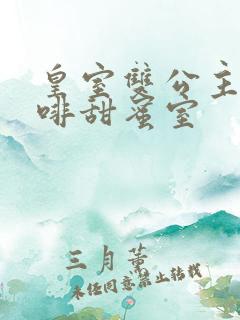 皇室雙公主
啡甜蜜室
三月薰
未经同意禁止转载